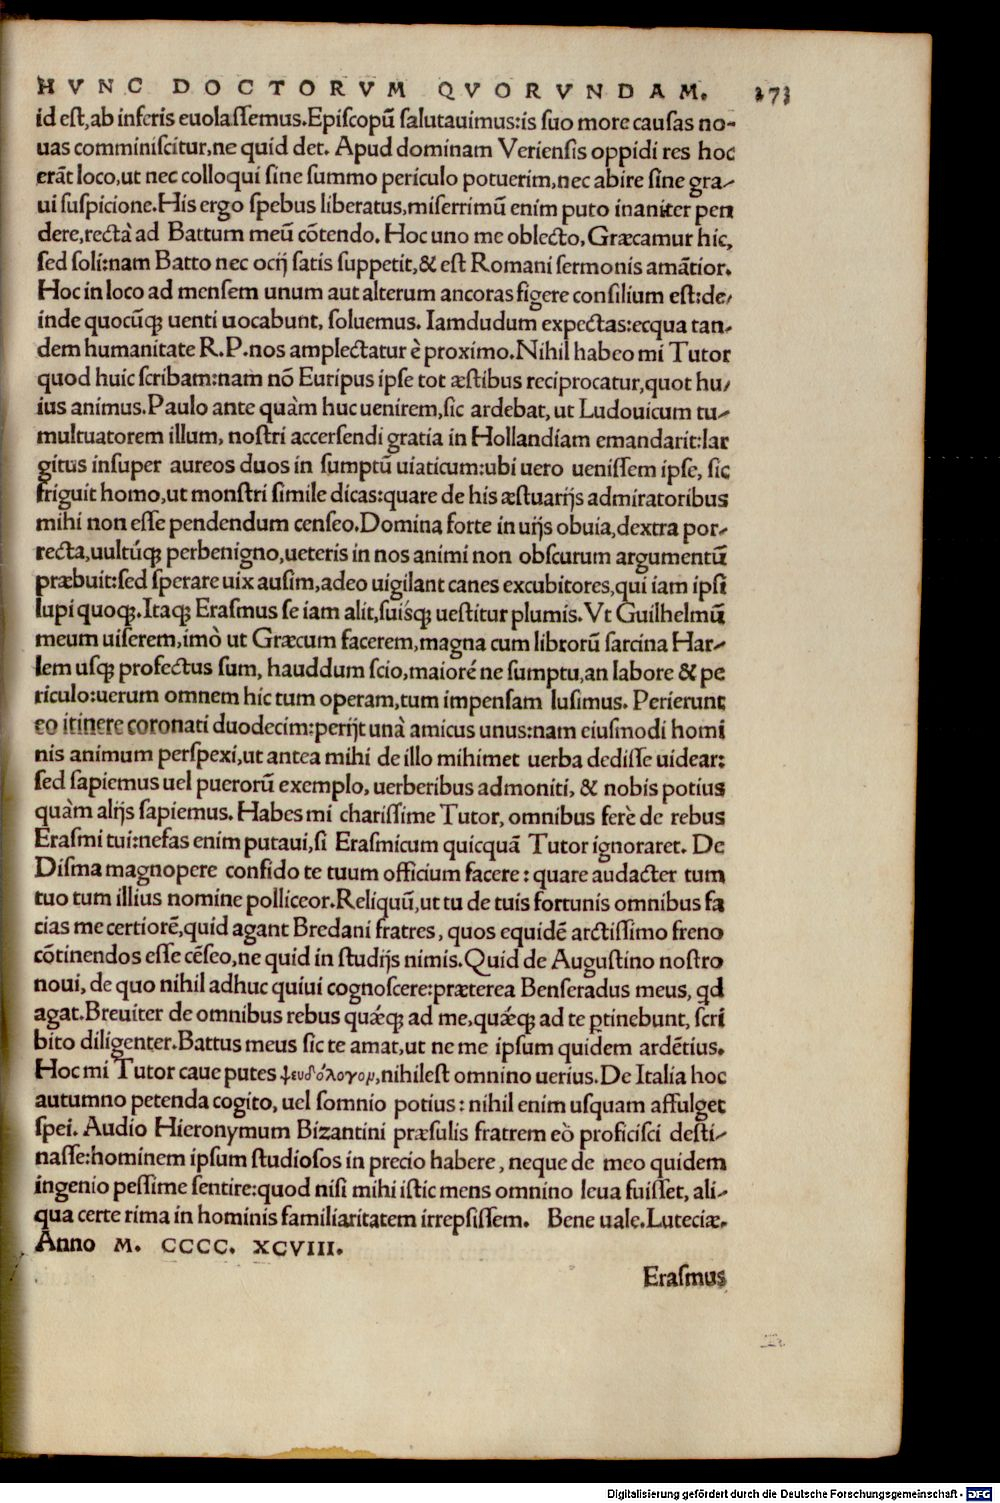 HVNC DOCTORVM QVORVNDAM. 273
id est, ab inferis euolassemus. Episcopũ salutauimus: is suo more causas no-
uas comminiscitur, ne quid det. Apud dominam Veriensis oppidi res hoc
erãt loco, ut nec colloqui sine summo periculo potuerim, nec abire sine gra-
ui suspicione. His ergo spebus liberatus, miserrimũ enim puto inaniter pen
dere, rectà ad Battum meũ cõtendo. Hoc uno me oblecto, Græcamur hic,
sed soli: nam Batto nec ocij satis suppetit, & est Romani sermonis amãtior.
Hoc in loco ad mensem unum aut alterum ancoras figere consilium est: de-
inde quocũq; uenti uocabunt, soluemus. Iamdudum expectas: ecqua tan-
dem humanitate R. P. nos amplectatur è proximo. Nihil habeo mi Tutor
quod huic scribam: nam nõ Euripus ipse tot æstibus reciprocatur, quot hu-
ius animus. Paulo ante quàm huc uenirem, sic ardebat, ut Ludouicum tu-
multuatorem illum, nostri accersendi gratia in Hollandiam emandarit: lar
gitus insuper aureos duos in sumptũ uiaticum: ubi uero uenissem ipse, sic
friguit homo, ut monstri simile dicas: quare de his æstuarijs admiratoribus
mihi non esse pendendum censeo. Domina forte in uijs obuia, dextra por-
recta, uultúq; perbenigno, ueteris in nos animi non obscurum argumentũ
præbuit: sed sperare uix ausim, adeo uigilant canes excubitores, qui iam ipsi
lupi quoq;. Itaq; Erasmus se iam alit, suisq; uestitur plumis. Vt Guilhelmũ
meum uiserem, imò ut Græcum facerem, magna cum librorũ sarcina Har-
lem usq; profectus sum, hauddum scio, maioré ne sumptu, an labore & pe
riculo: uerum omnem hic tum operam, tum impensam lusimus. Perierunt
eo itinere coronati duodecim: perijt unà amicus unus: nam eiusmodi homi
nis animum perspexi, ut antea mihi de illo mihimet uerba dedisse uidear:
sed sapiemus uel puerorũ exemplo, uerberibus admoniti, & nobis potius
quàm alijs sapiemus. Habes mi charissime Tutor, omnibus ferè de rebus
Erasmi tui: nefas enim putaui, si Erasmicum quicquã Tutor ignoraret. De
Disma magnopere confido te tuum officium facere: quare audacter tum
tuo tum illius nomine polliceor. Reliquũ, ut tu de tuis fortunis omnibus fa
cias me certiorẽ, quid agant Bredani fratres, quos equidẽ arctissimo freno
cõtinendos esse cẽseo, ne quid in studijs nimis. Quid de Augustino nostro
noui, de quo nihil adhuc quiui cognoscere: præterea Benseradus meus, qd
agat. Breuiter de omnibus rebus quǽq; ad me, quǽq; ad te ꝑtinebunt, scri
bito diligenter. Battus meus sic te amat, ut ne me ipsum quidem ardẽtius.
Hoc mi Tutor caue putes ψευδόλογον, nihil est omnino uerius. De Italia hoc
autumno petenda cogito, uel somnio potius: nihil enim usquam affulget
spei. Audio Hieronymum Bizantini præsulis fratrem eò proficisci desti-
nasse: hominem ipsum studiosos in precio habere, neque de meo quidem
ingenio pessime sentire: quod nisi mihi istic mens omnino leua fuisset, ali-
qua certe rima in hominis familiaritatem irrepsissem. Bene uale. Luteciæ.
Anno M. CCCC. XCVIII.
Erasmus
Digitalisierung gefördert durch die Deutsche Forschungsgemeinschaft - DFG